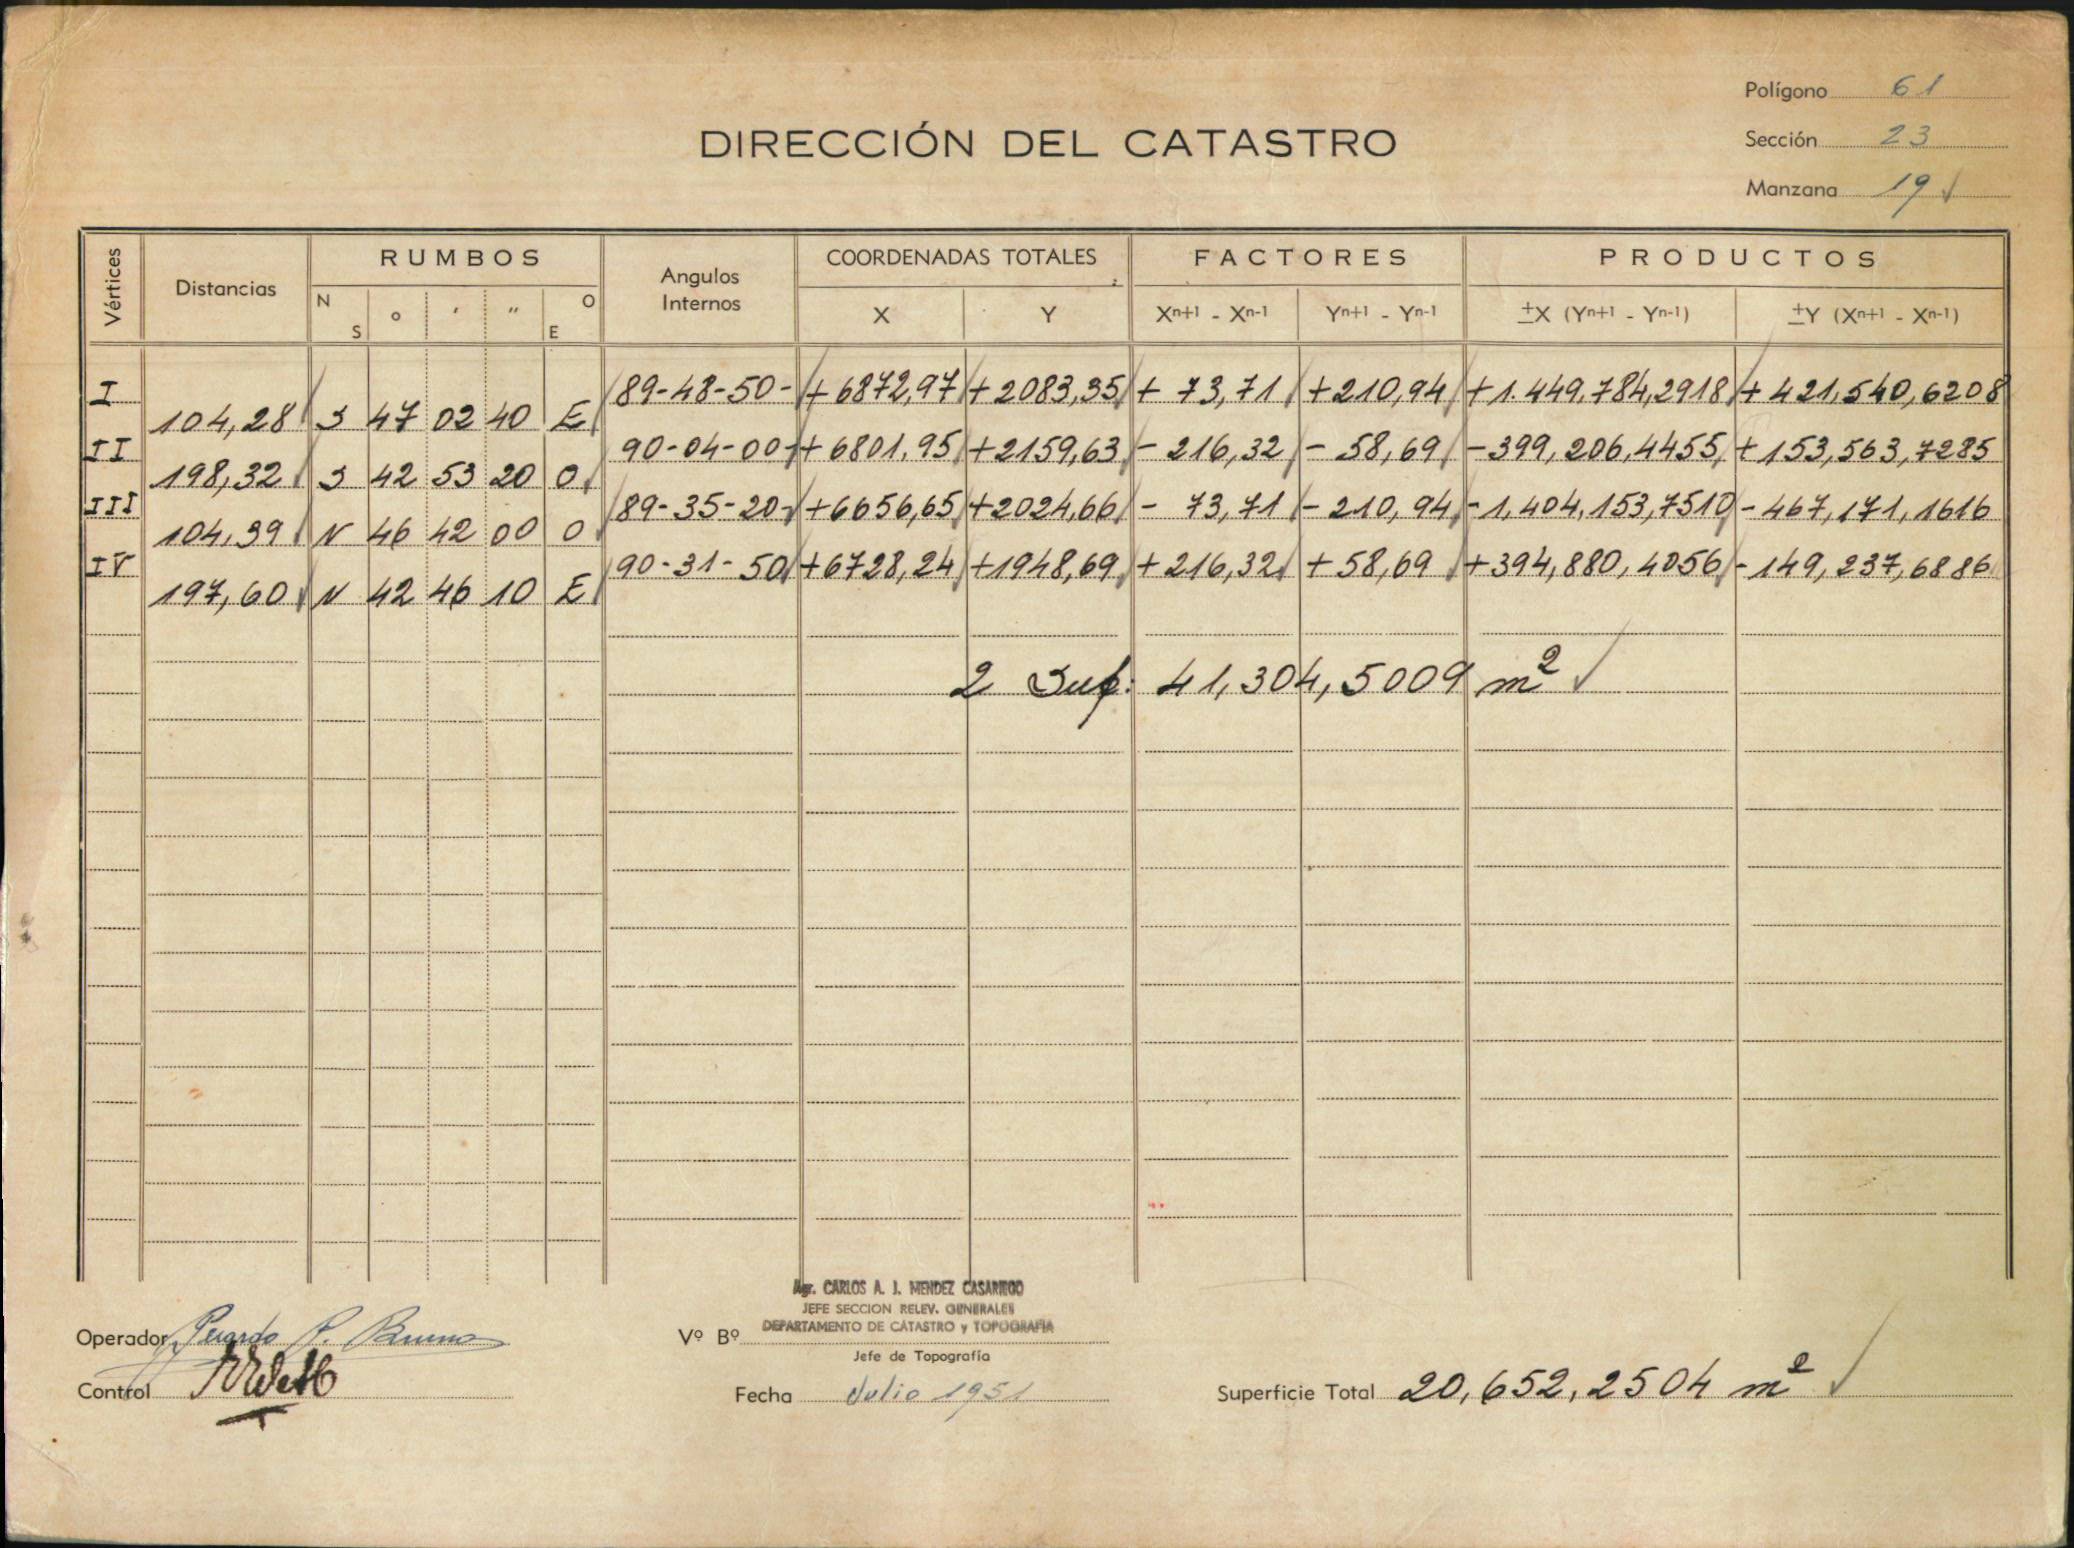 Polígono 61
DIRECCIÓN DEL CATASTRO
Sección 23
Manzana 19 ✓
Vértices Distancias RUMBOS Angulos Internos COORDENADAS TOTALES FACTORES PRODUCTOS
N S o ′ ″ O E X Y Xn+1 - Xn-1 Yn+1 - Yn-1 ±X (Yn+1 - Yn-1) ±Y (Xn+1 - Xn-1)
I 89-48-50- +6872,97 +2083,35 + 73,71 +210,94 +1.449,784,2918 +421,540,6208
104,28 S 47 02 40 E
II 90-04-00- +6801,95 +2159,63 - 216,32 - 58,69 -399,206,4455 +153,563,7285
198,32 S 42 53 20 O
III 89-35-20- +6656,65 +2024,66 - 73,71 - 210,94 -1,404,153,7510 -467,171,1616
104,39 N 46 42 00 O
IV 90-31-50 +6728,24 +1948,69 +216,32 +58,69 +394,880,4056 -149,237,6886
197,60 N 42 46 10 E
2 Sup: 41,304,5009 m² ✓
Agr. CARLOS A. J. MENDEZ CASARIEGO
JEFE SECCION RELEV. GENERALES
DEPARTAMENTO DE CATASTRO y TOPOGRAFIA
Operador P. Bruno Vº Bº
Jefe de Topografía
Control Fecha Julio 1951 Superficie Total 20,652,2504 m² ✓